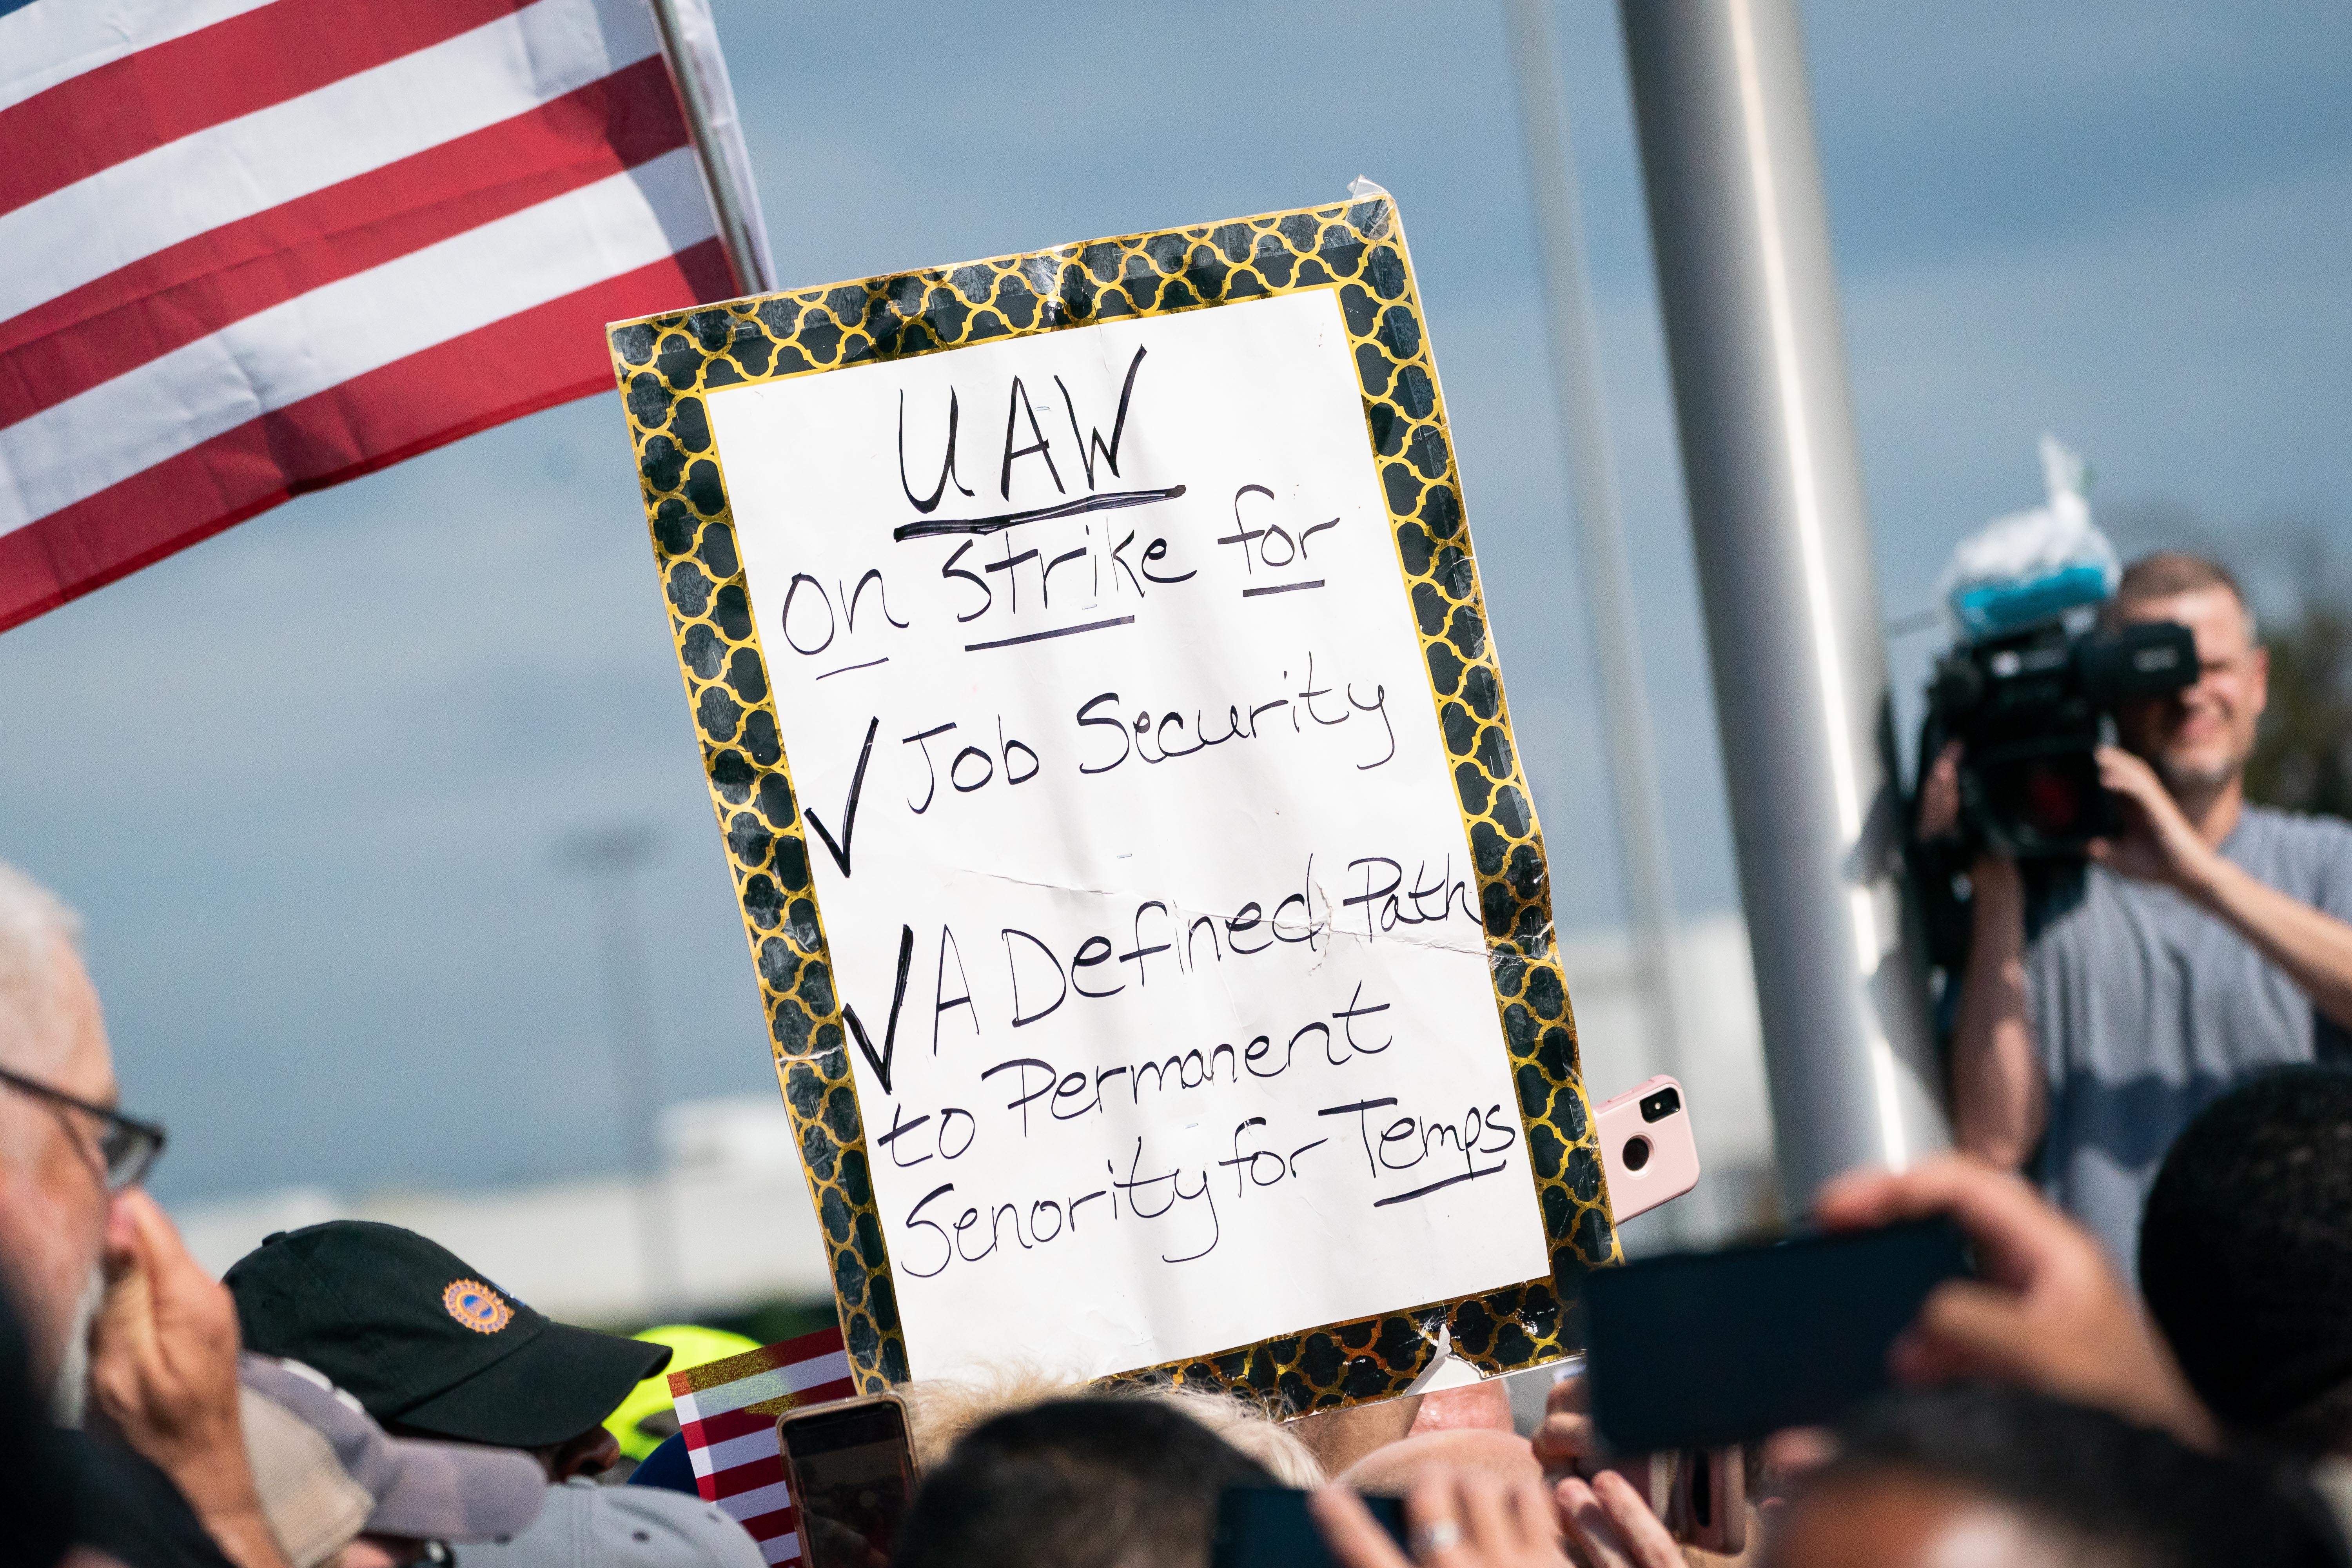 UAW
on strike for
✓ Job Security
✓ A Defined Path
to Permanent
Senority for Temps